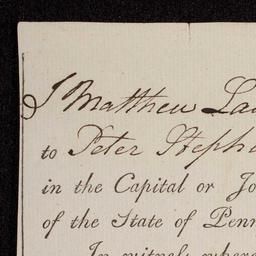 I Matthew La
to Peter Steph
in the Capital or Jo
of the State of Penn
In witness where